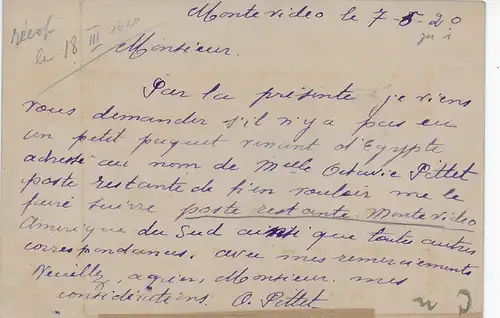 Montevideo le 7-5-20
récep
le 18 III 1920
Monsieur.
Par la présente je viens
vous demander s'il n'y a pas eu
un petit paquet venant d'Egypte
adressé au nom de Melle Octavie Pittet
poste restante de bien vouloir me le
faire suivre poste restante. Montevideo
Amerique du Sud ainsi que toutes autres
correspondances, avec mes remerciements
Veuillez, agréer, Monsieur. mes
considérations. O. Pittet